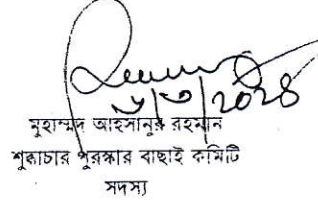 ৬/৩/2024
মুহাম্মদ আহসানুর রহমান
শুদ্ধাচার পুরস্কার বাছাই কমিটি
সদস্য